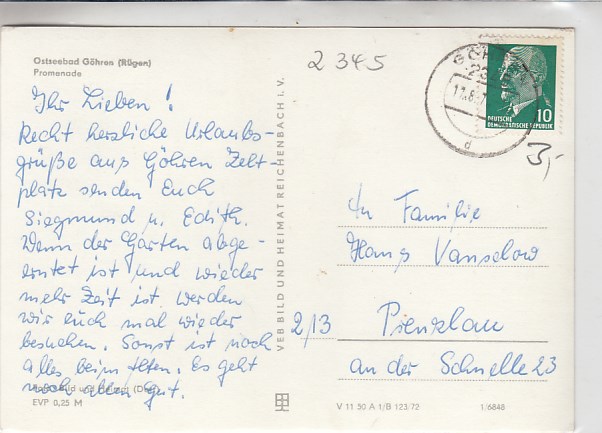 Ostseebad Göhren (Rügen)
Promenade
Ihr Lieben!
Recht herzliche Urlaubs-
grüße aus Göhren Zelt-
platz senden Euch
Siegmund u. Edith.
Wenn der Garten abge-
erntet ist und wieder
mehr Zeit ist werden
wir euch mal wieder
besuchen. Sonst ist noch
alles beim Alten. Es geht
noch allen gut.
Bild und Heimat
EVP 0,25 M
VEB BILD UND HEIMAT REICHENBACH i. V.
2345
DEUTSCHE
DEMOKRATISCHE REPUBLIK
10
3,-
An Familie
Hans Vanselow
213 Prenzlau
an der Schnelle 23
V 11 50 A 1/B 123/72
1/6848